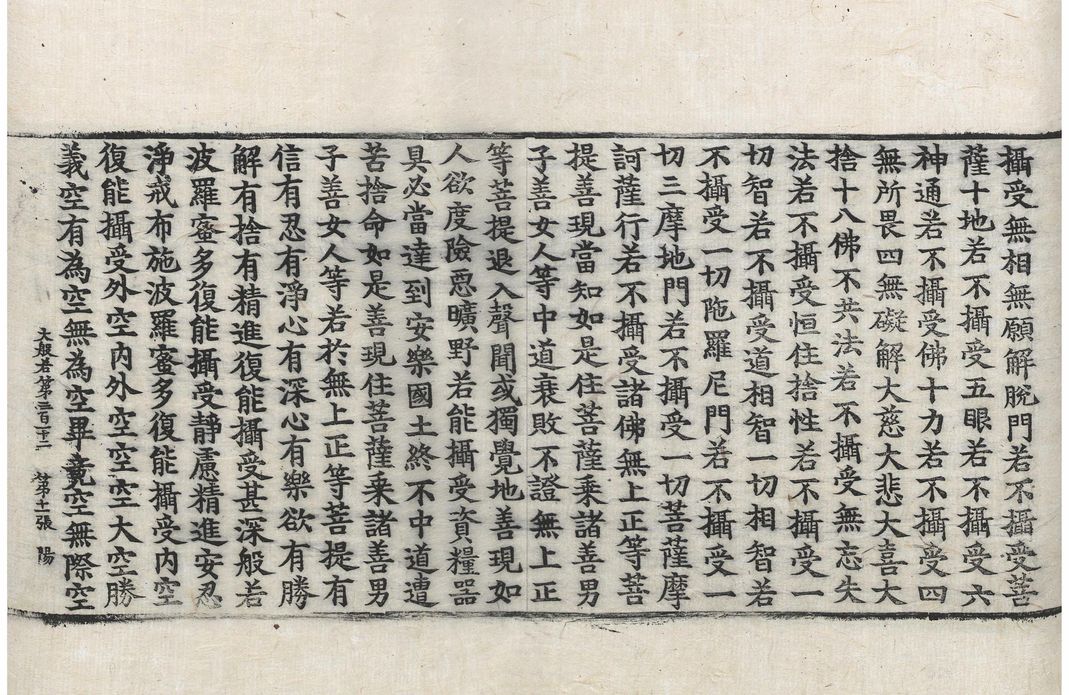 攝受無相無願解脫門若不攝受菩
薩十地若不攝受五眼若不攝受六
神通若不攝受佛十力若不攝受四
無所畏四無礙解大慈大悲大喜大
捨十八佛不共法若不攝受無忘失
法若不攝受恒住捨性若不攝受一
切智若不攝受道相智一切相智若
不攝受一切陁羅尼門若不攝受一
切三摩地門若不攝受一切菩薩摩
訶薩行若不攝受諸佛無上正等菩
提善現當知如是住菩薩乘諸善男
子善女人等中道衰敗不證無上正
等菩提退入聲聞或獨覺地善現如
人欲度險惡曠野若能攝受資糧器
具必當達到安樂國土終不中道遭
苦捨命如是善現住菩薩乘諸善男
子善女人等若於無上正等菩提有
信有忍有淨心有深心有樂欲有勝
解有捨有精進復能攝受甚深般若
波羅蜜多復能攝受靜慮精進安忍
淨戒布施波羅蜜多復能攝受內空
復能攝受外空內外空空空大空勝
義空有為空無為空畢竟空無際空
大般若第三百十二 第十一張 陽